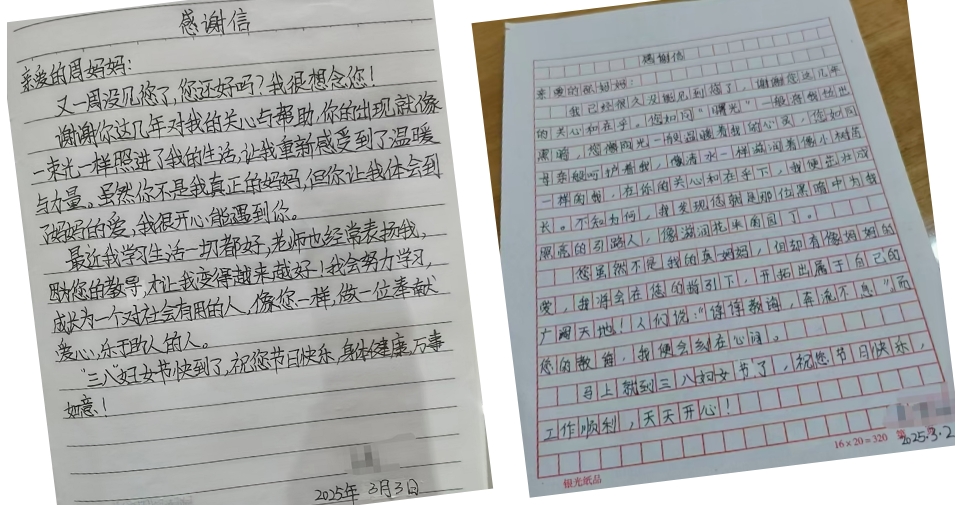 感谢信
亲爱的周妈妈:
又一周没见您了,您还好吗?我很想念您!
谢谢你这几年对我的关心与帮助,你的出现就像
一束光一样照进了我的生活,让我重新感受到了温暖
与力量。虽然你不是我真正的妈妈,但你让我体会到
了妈妈的爱,我很开心能遇到你。
最近我学习生活一切都好,老师也经常表扬我,
您的教导,才让我变得越来越好!我会努力学习,
成长为一个对社会有用的人,像您一样,做一位奉献
爱心、乐于助人的人。
"三八"妇女节快到了,祝您节日快乐,身体健康,万事
如意!
2025年 3月3日
感谢信
亲爱的妈妈:
我已经很久没能见到您了,谢谢您这几年
的关心和在乎。您如同"曙光"一般将我拉出
黑暗,您像阳光一般温暖着我的心灵,您如同
母亲般呵护着我,像清水一样滋润着像小树苗
一样的我,在你的关心和在乎下,我便茁壮成
长。不知为何,我发现您就是那位黑暗中为我
照亮的引路人,像滋润花朵的园丁。
您虽然不是我的真妈妈,但却有像妈妈的
爱,我将会在您的指引下,开拓出属于自己的
广阔天地!人们说:"谆谆教诲,奔流不息"而
您的教育,我便会刻在心间。
马上就到三八妇女节了,祝您节日快乐,
工作顺利,天天开心!
16×20=320
2025.3.2
银光纸品